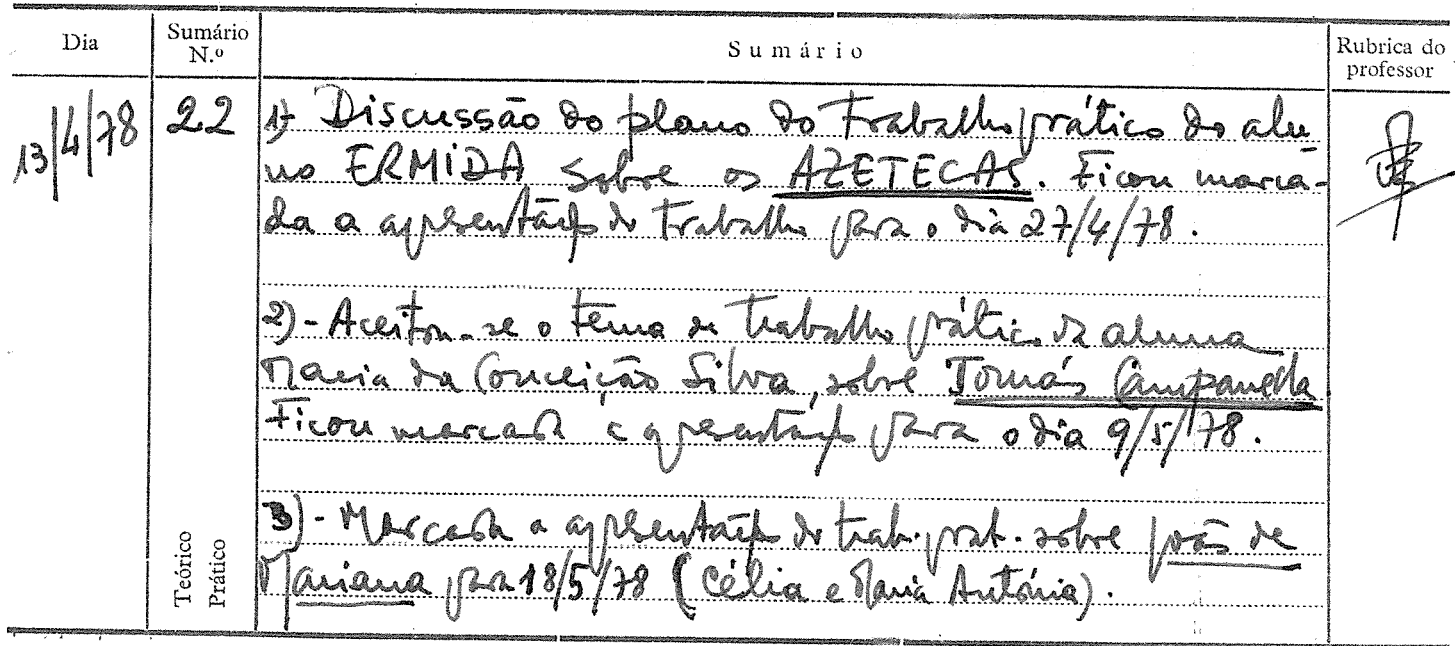 Dia
Sumário N.º
Sumário
Rubrica do professor
13/4/78
22
1) Discussão do plano do trabalho prático do alu
no ERMIDA sobre os AZETECAS. Ficou marca-
da a apresentação do trabalho para o dia 27/4/78.
2) - Aceitou-se o tema do trabalho prático da aluna
Maria da Conceição Silva, sobre Tomás Campanella
Ficou marcada a apresentação para o dia 9/5/78.
3) - Marcada a apresentação do trab. prat. sobre João de
Mariana para 18/5/78 (Célia e Maria Antónia).
Teórico
Prático